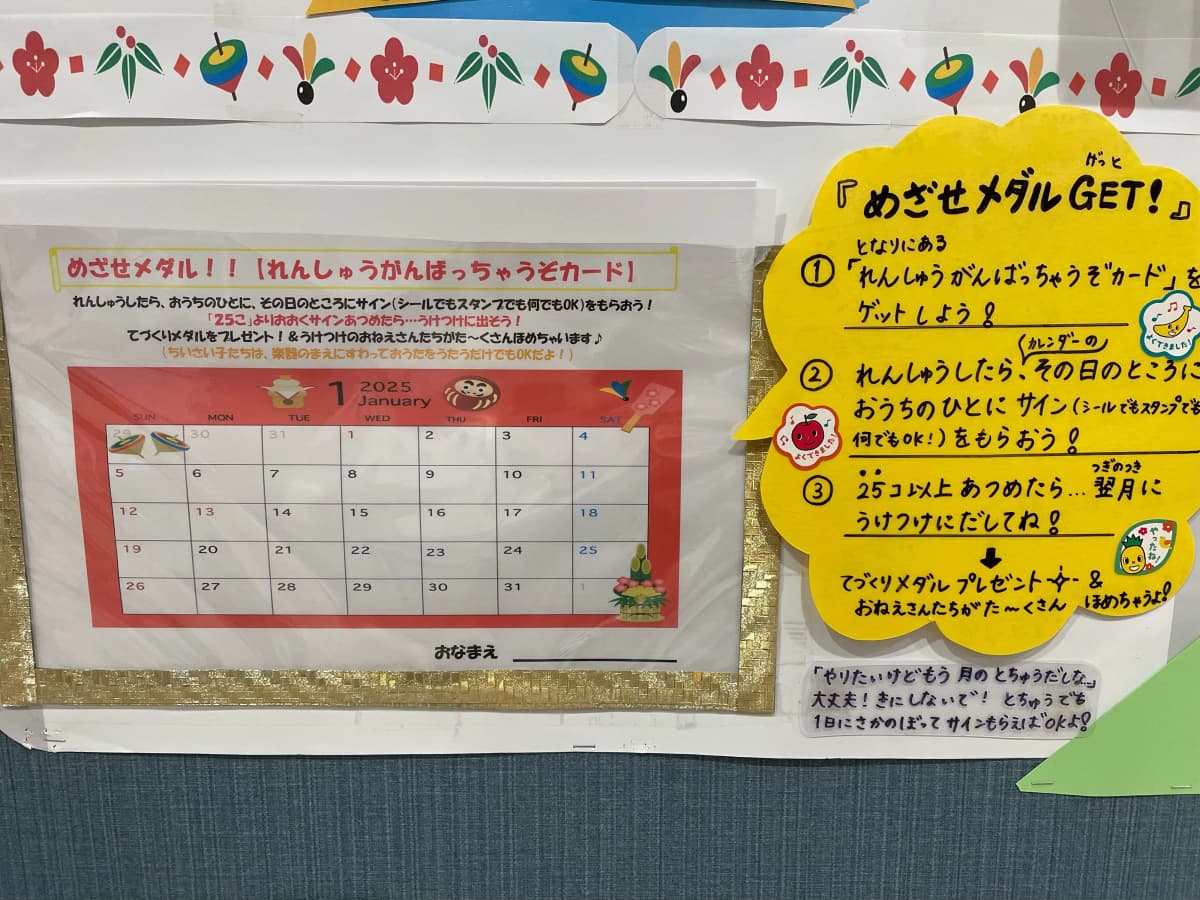 めざせメダル！！【れんしゅうがんばっちゃうぞカード】
れんしゅうしたら、おうちのひとに、その日のところにサイン(シールでもスタンプでも何でもOK)をもらおう！
「25こ」よりおおくサインあつめたら…うけつけに出そう！
てづくりメダルをプレゼント！＆うけつけのおねえさんたちがた～くさんほめちゃいます♪
(ちいさい子たちは、楽器のまえにすわっておうたをうたうだけでもOKだよ！)
1 2025 January
SUN MON TUE WED THU FRI SAT
29 30 31 1 2 3 4
5 6 7 8 9 10 11
12 13 14 15 16 17 18
19 20 21 22 23 24 25
26 27 28 29 30 31 1
おなまえ
げっと
『めざせメダルGET!』
となりにある
①「れんしゅうがんばっちゃうぞカード」を
ゲットしよう！
カレンダーの
②れんしゅうしたら、その日のところに
おうちのひとにサイン(シールでもスタンプでも
何でもOK!)をもらおう！
よくできました!
よくできました!
つぎのつき
③25コ以上あつめたら…翌月に
うけつけにだしてね！
やったね!
↓
てづくりメダルプレゼント&
おねえさんたちがた～くさんほめちゃうよ!
「やりたいけどもう月のとちゅうだしな…」
大丈夫！きにしないで！とちゅうでも
1日にさかのぼってサインもらえばOKよ！